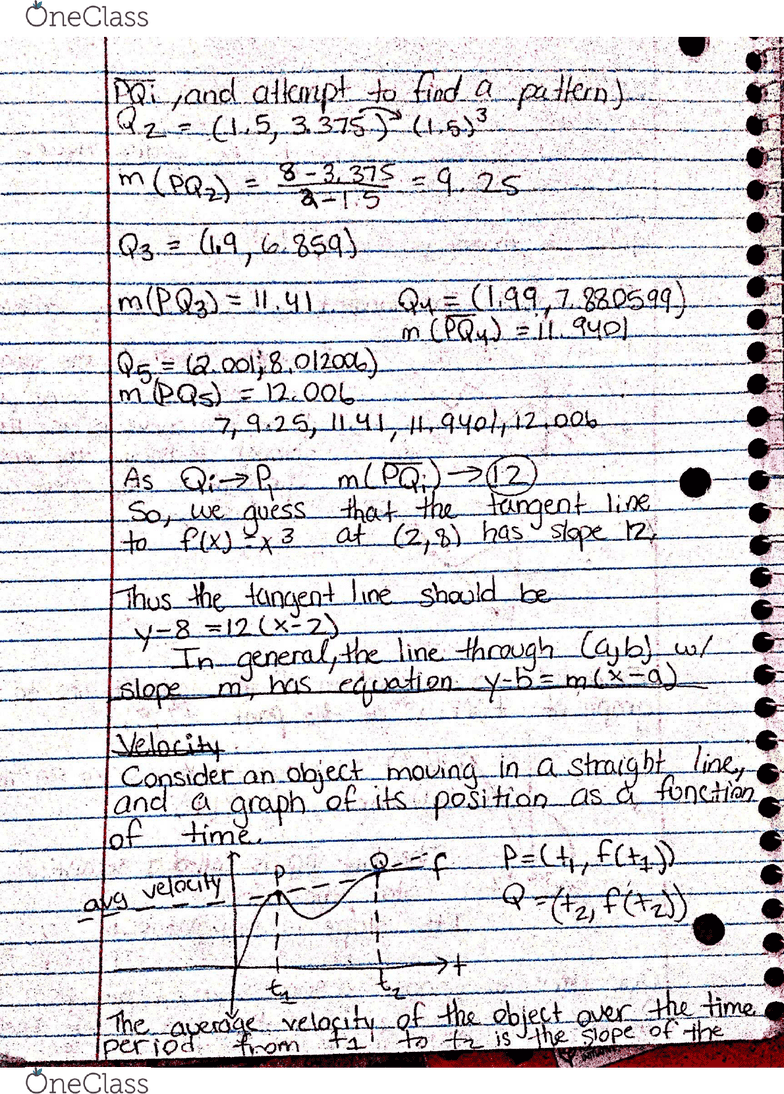 OneClass
PQi, and attempt to find a pattern)
Q2 = (1.5, 3.375) → (1.5)^3
m(PQ2) = 8-3.375 / 2-1.5 = 9.25
Q3 = (1.9, 6.859)
m(PQ3) = 11.41 Q4 = (1.99, 7.880599)
m(PQ4) = 11.9401
Q5 = (2.001, 8.012006)
m(PQ5) = 12.006
7, 9.25, 11.41, 11.9401, 12.006
As Qi → P, m(PQi) → 12
So, we guess that the tangent line
to f(x) = x^3 at (2,8) has slope 12.
Thus the tangent line should be
y-8 = 12(x-2)
In general, the line through (a,b) w/
slope m, has equation y-b = m(x-a)
Velocity
Consider an object moving in a straight line,
and a graph of its position as a function
of time.
P Q f P=(t1, f(t1))
avg velocity Q=(t2, f(t2))
t
t1 t2
The average velocity of the object over the time
period from t1 to t2 is the slope of the
OneClass